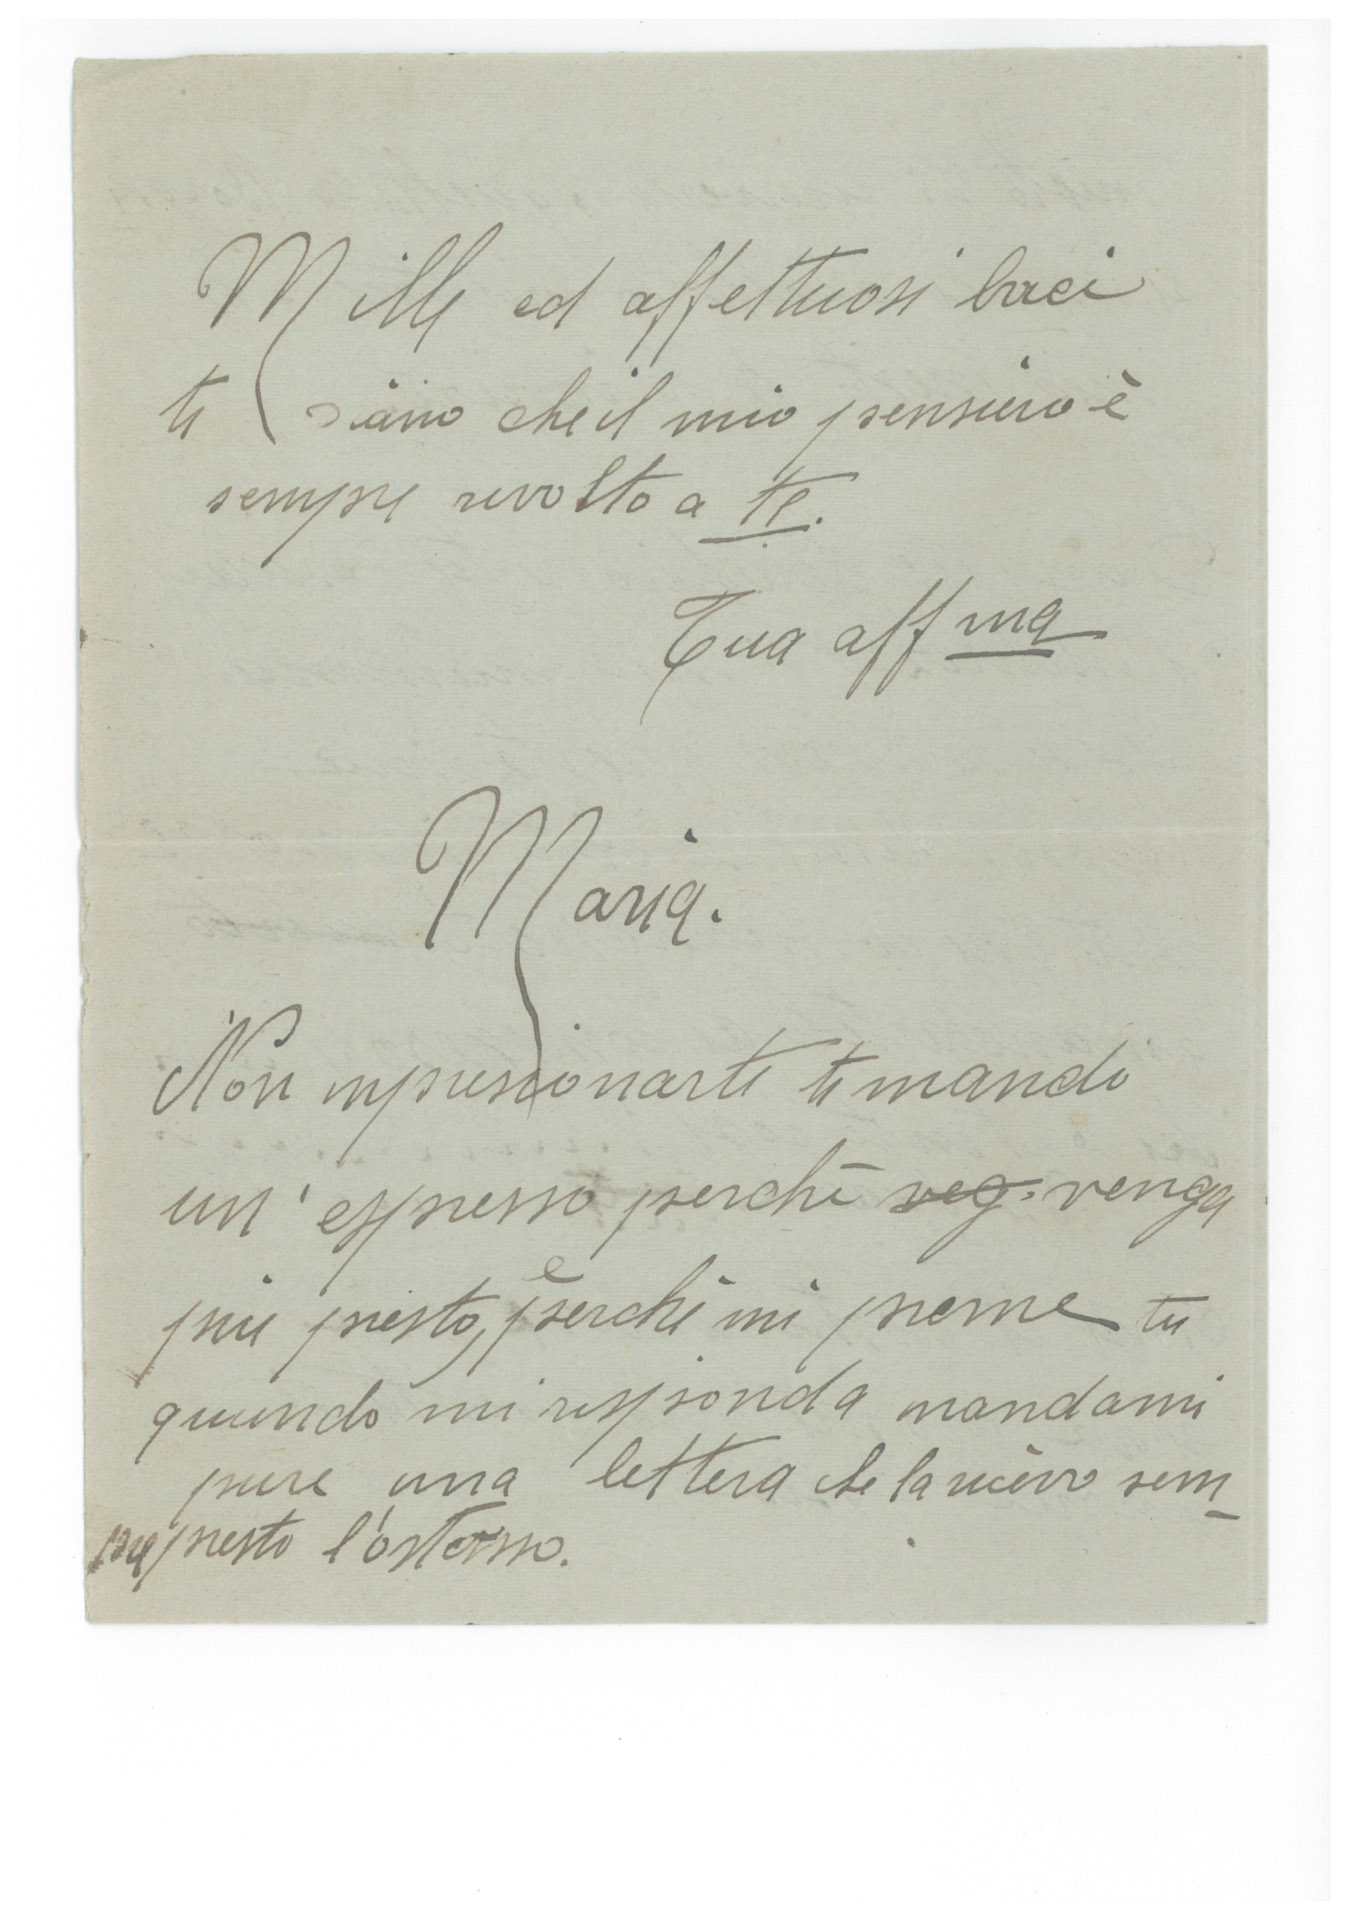 Mille ed affettuosi baci
ti siano che il mio pensiero è
sempre rivolto a te.
Tua affma
Maria.
Non impressionarti ti mando
un' espresso perchè veg. venga
più presto, perchè mi preme tu
quando mi risponda mandami
pure una lettera che la ricevo sem
pre presto l'ostesso.